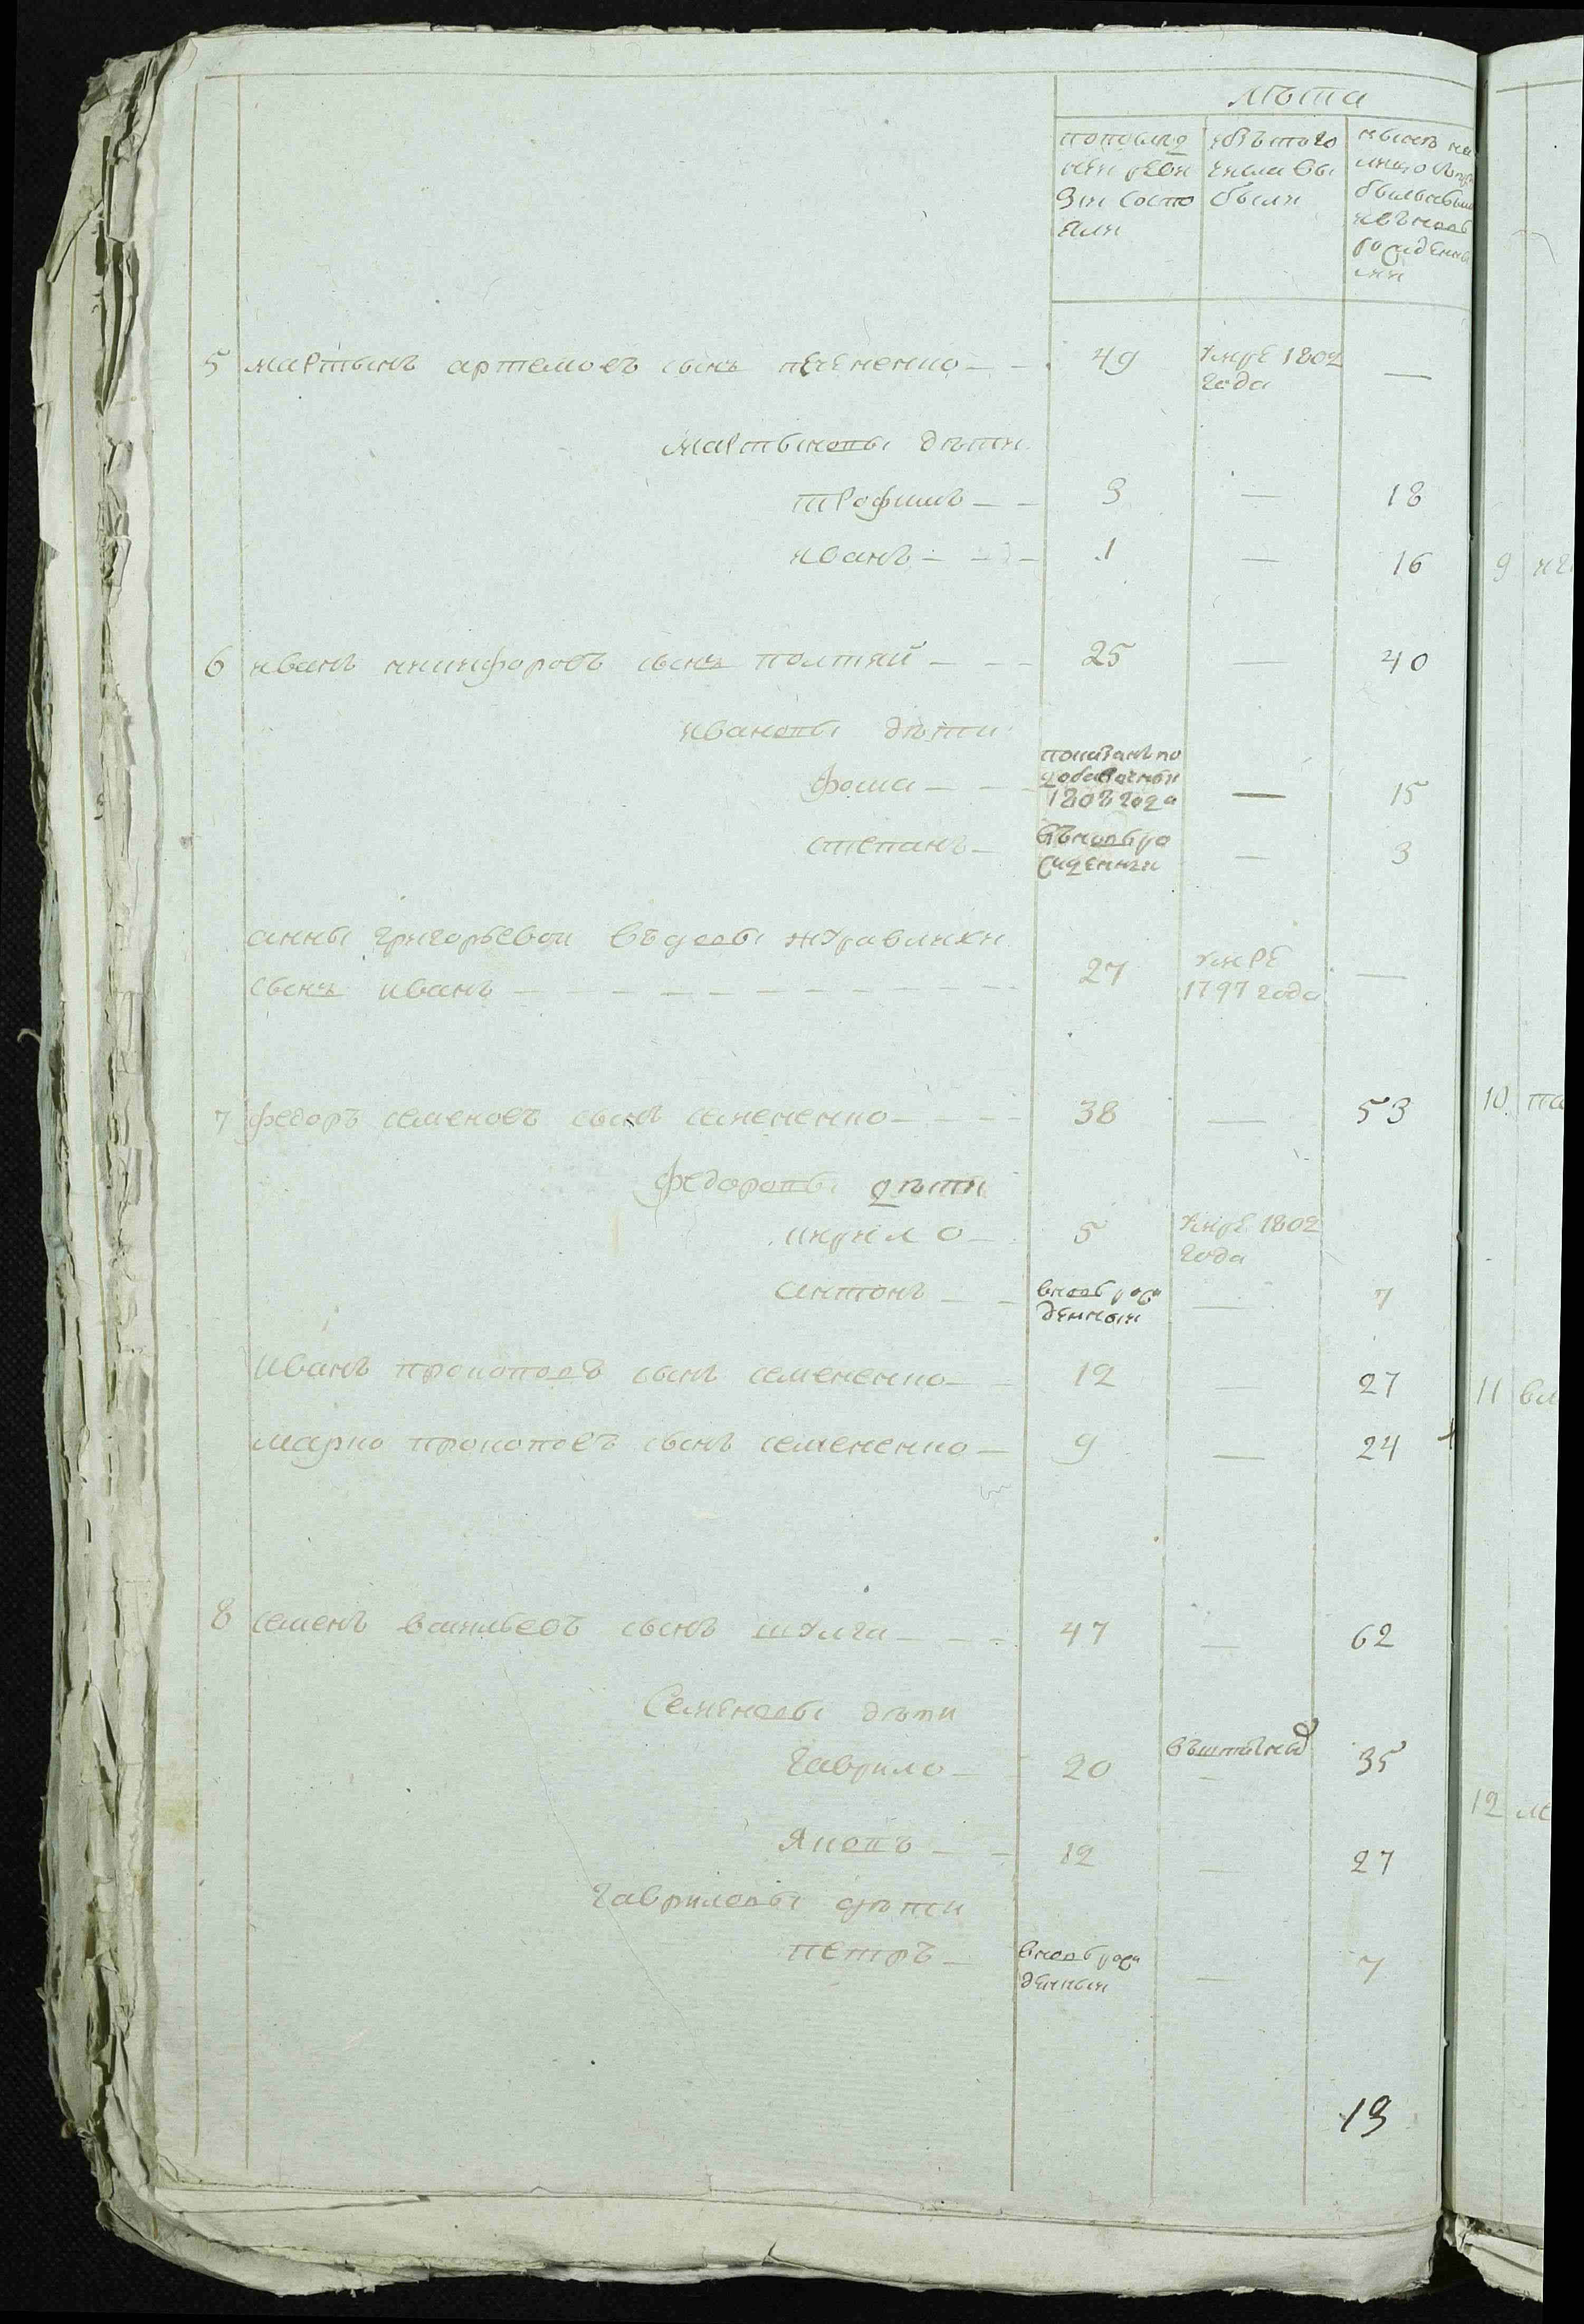 лѣта
по последней ревизіи состояли
изъ того числа выбыли
нынѣ на лицо съ прибылыми и въновь рожденными
5 мартынъ артемовъ сынъ печененко — 49 умре 1802 года —
мартыновы дѣти
трофимъ — 3 — 18
иванъ — 1 — 16
6 иванъ никифоровъ сынъ полтяй — 25 — 40
ивановы дѣти
фома — показанъ по добавочной 1808 года — 15
степанъ — въновь рожденный — 3
анны григорьевой въдовы журавлихи
сынъ иванъ — 27 умре 1797 года —
7 федоръ семеновъ сынъ семененко — 38 — 53
федоровы дѣти
кирило — 5 умре 1802 года
антонъ — вновь рожденный — 7
иванъ прокоповъ сынъ семененко — 12 — 27
марко прокоповъ сынъ семененко — 9 — 24
8 семенъ васильевъ сынъ шулга — 47 — 62
Семеновы дѣти
гаврило — 20 — 35
Яковъ — 12 — 27
гавриловы дѣти
петръ — вновь рожденный — 7
13
9
10 па
11 вл
12